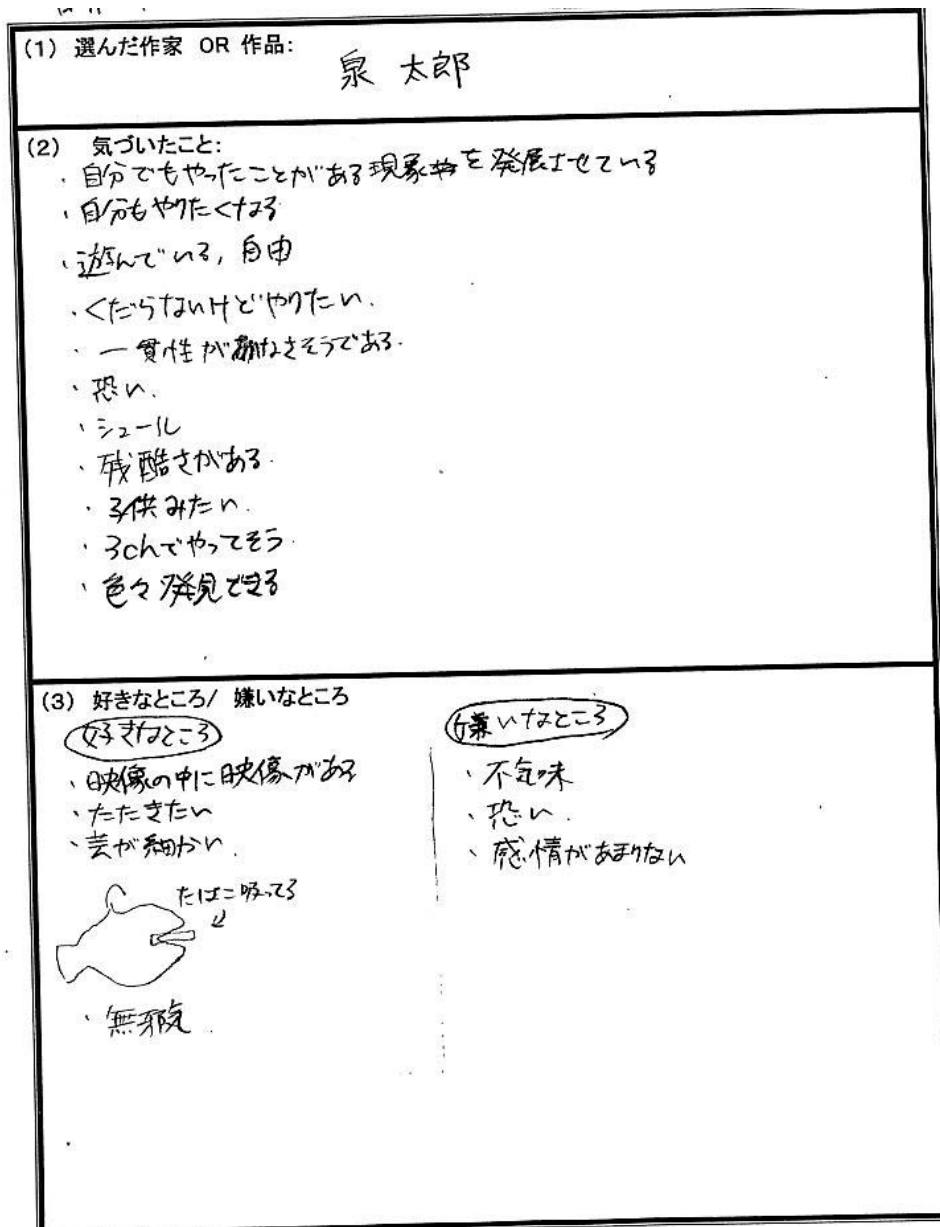 (1) 選んだ作家 OR 作品:
泉 太郎
(2) 気づいたこと:
・自分でもやったことがある現象を発展させている
・自分もやりたくなる
・遊んでいる, 自由
・くだらないけどやりたい.
・一貫性がなさそうである.
・恐い.
・シュール
・残酷さがある.
・子供みたい.
・3chでやってそう.
・色々発見できる
(3) 好きなところ/ 嫌いなところ
好きなところ
・映像の中に映像がある
・たたきたい
・芸が細かい.
たばこ吸ってる
・無邪気.
嫌いなところ
・不気味
・恐い.
・感情があまりない